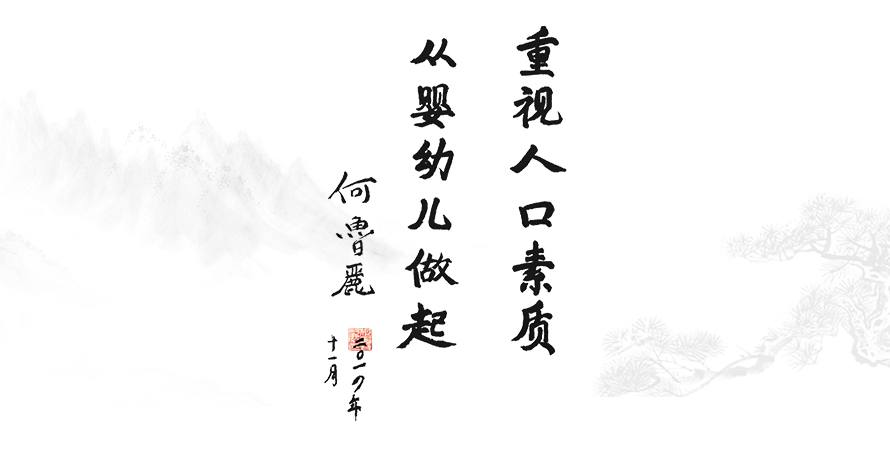 重视人口素质
从婴幼儿做起
何鲁麗
二〇一〇年
十一月